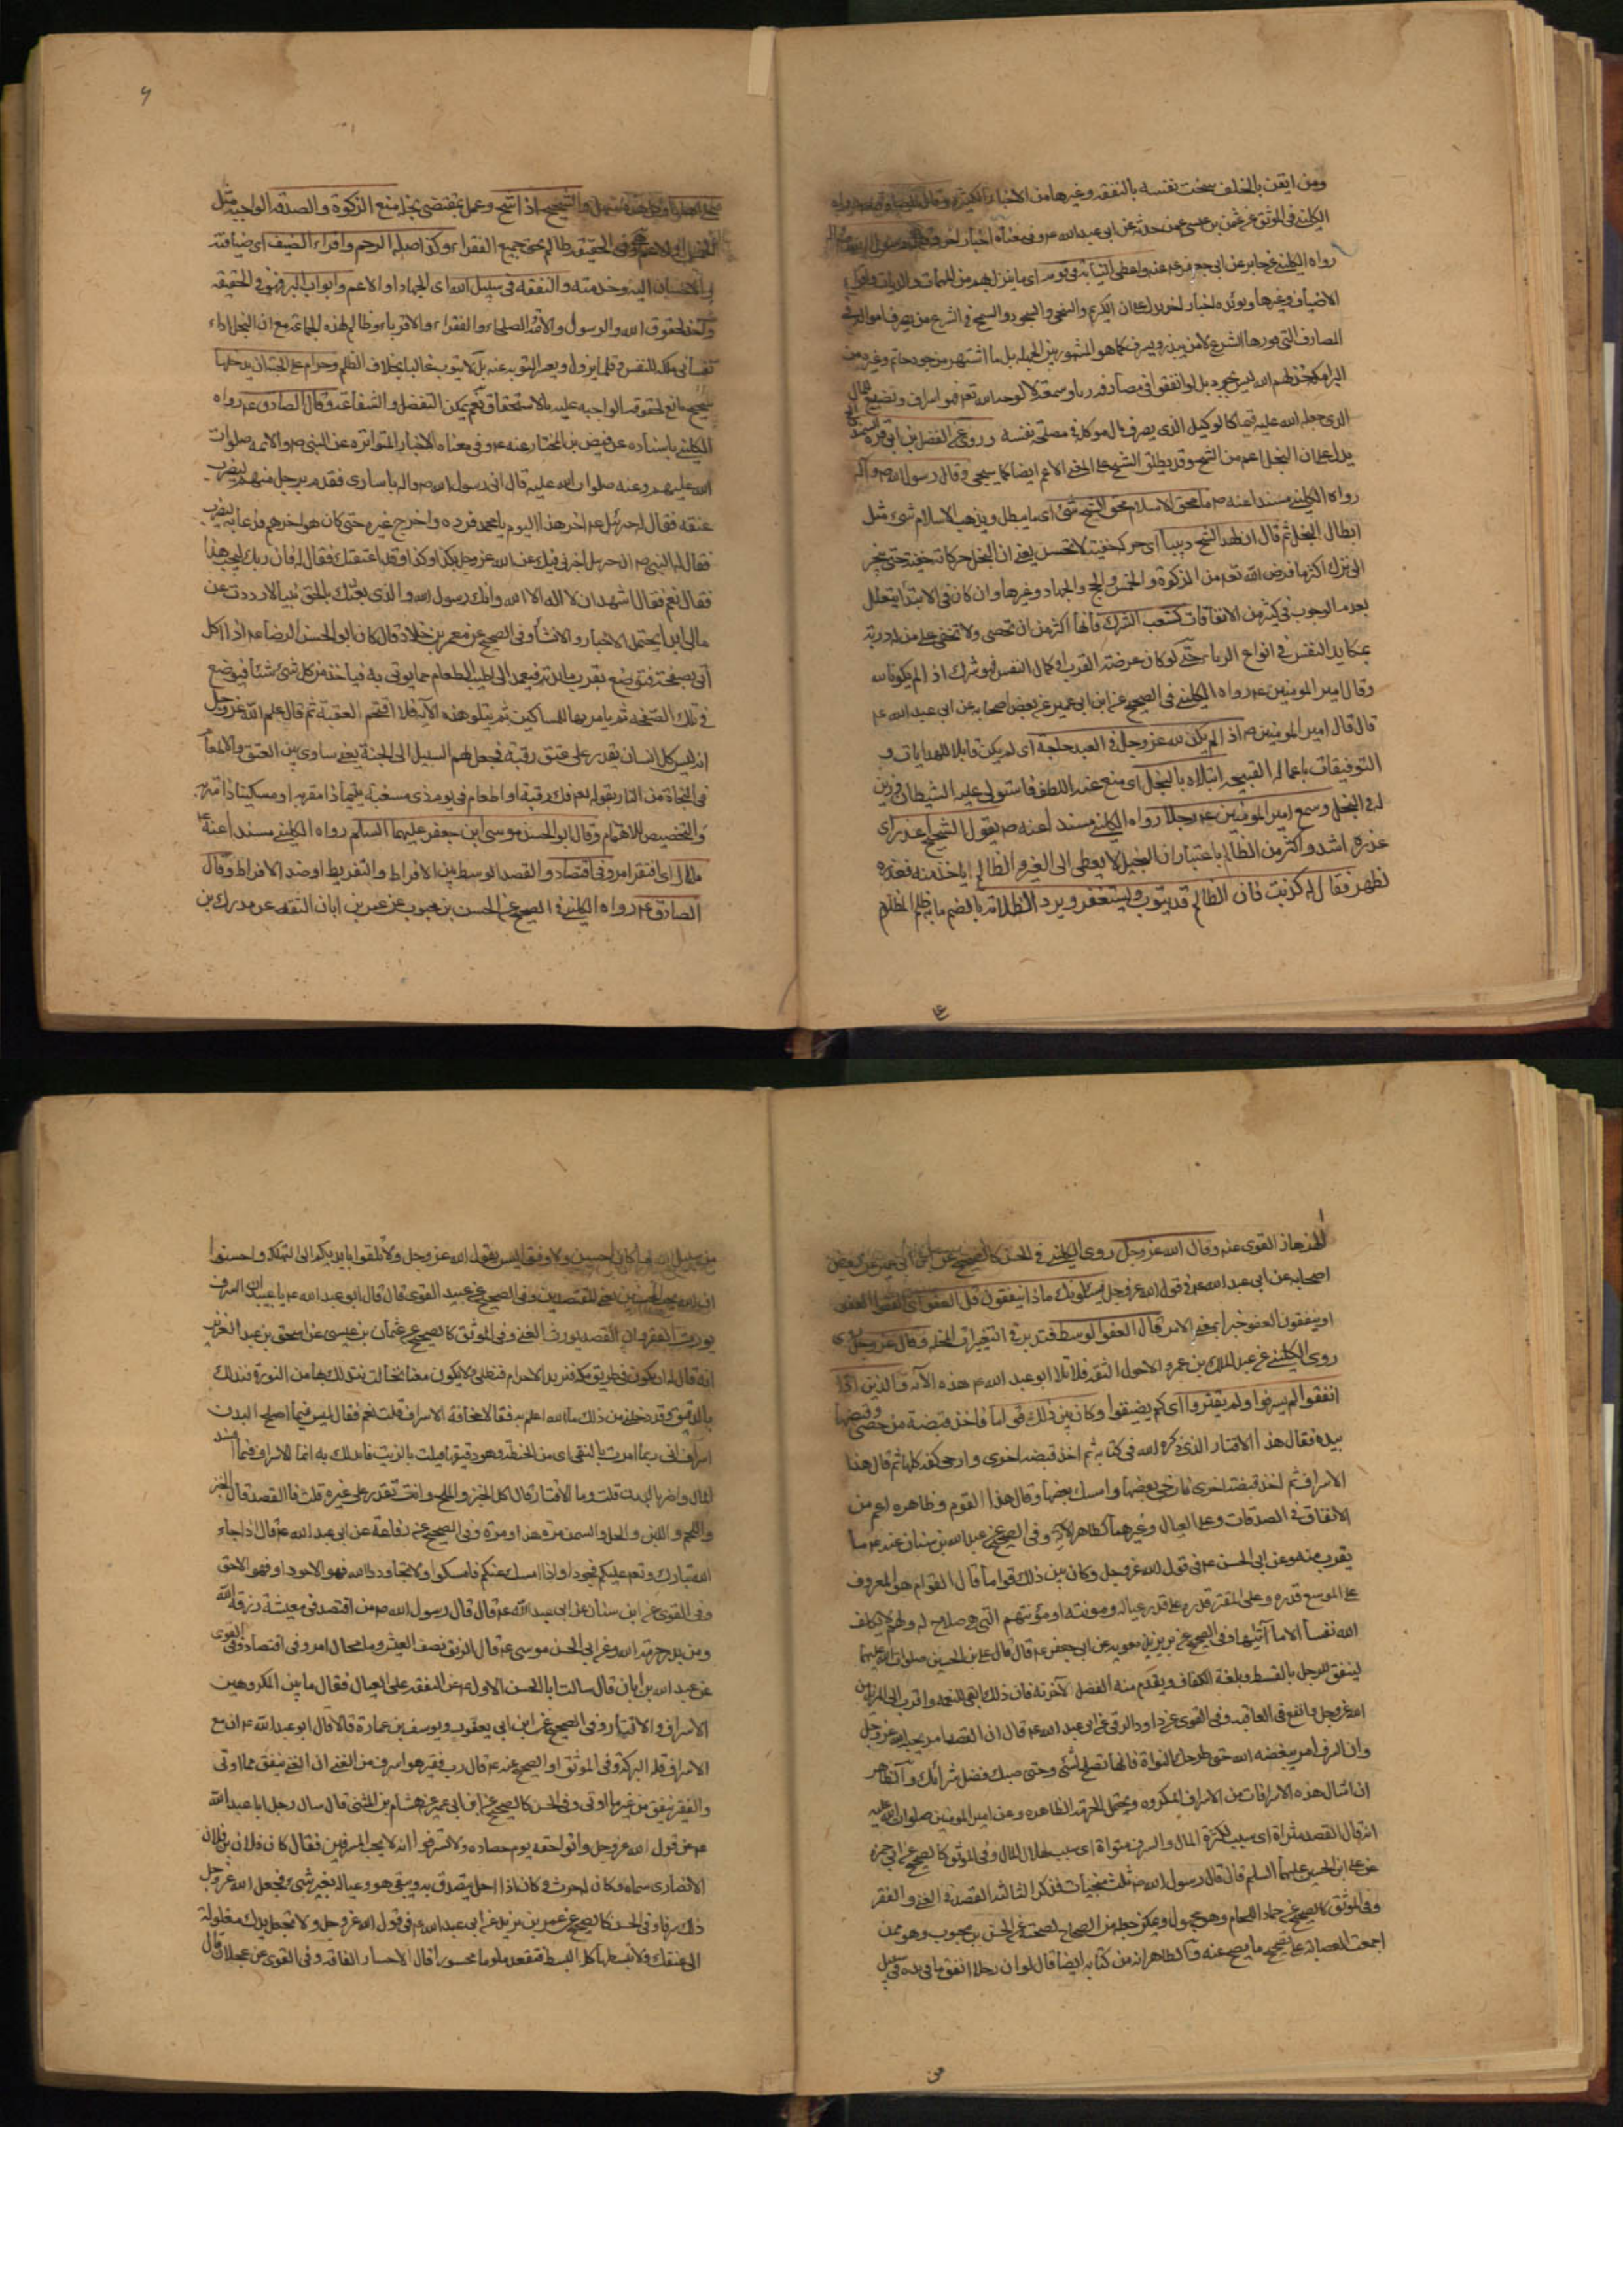 ومن ايقن بالخلف سخت نفسه بالنفقه وغيرها من الاخبار الكثيرة وقال
الكليني في الموثق عن عثمن بن عيسى عمن حدثه عن ابي عبد الله ع وفي معناه اخبار اخر
رواه الكليني عن جابر عن ابي جعفر ع واعطى النايبة في قومه اى ما ينزل بهم من المهمات والديات
الاضياف وغيرها ويؤيده اخبار اخر يدل على ان الكريم والسخى والسمح في الشرع من يصرف امواله في
المصارف التى قررها الشرع لا من يبذر ويسرف كما هو المشهور بين الجهلة بل ما اشتهر من جود حاتم وغيره من
البرامكة ليس بجود بل لو انفقوا في مصارف رياء وسمعة لا لوجه الله تعالى فهو اسراف وتضييع مال
الذى جعله الله عليه قيما كالوكيل الذى يصرف مال موكله في مصلحة نفسه وروى عن الفضل بن ابي قرة
يدل على ان البخل اعم من الشح وقد يطلق الشح على المعنى الاعم ايضا كما سيجى وقال رسول الله ص وآله
رواه الكليني مسندا عنه ص ما محق الاسلام محق الشح شئ اى ما يبطل ويذهب الاسلام شئ مثل
ابطال البخل ثم قال ان لهذا الشح دبيبا اى حركة خفية لا تحس يعني ان البخل حركاته خفية حتى ينجر
الى ترك اكثر ما فرض الله تعالى من الزكوة والخمس والحج والجهاد وغيرها وان كان في الابتدا يتعلل
بعدم الوجوب في كثير من الانفاقات كشعب الشرك فانها اكثر من ان تحصى ولا تخفى على من له دربة
بمكايد النفس في انواع الرياء حتى لو كان غرضه القرب او كمال النفس فهو شرك اذ لم يكن لله
وقال امير المومنين ع رواه الكليني في الصحيح عن ابن ابي عمير عن بعض اصحابه عن ابي عبد الله ع
قال قال امير المومنين ص اذا لم يكن لله عز وجل في العبد حاجة اى لم يكن قابلا للهدايات و
التوفيقات باعماله القبيحه ابتلاه بالبخل اى منع عنه اللطف فاستولى عليه الشيطان فزين
له في البخل وسمع امير المومنين ع رجلا رواه الكليني مسندا عنه ص يقول الشحيح اعذر اى
عذره اشد واكثر من الظالم باعتبار ان البخيل لا يعطى الى الغير والظالم ياخذ منه فعذره
اظهر فقال له كذبت فان الظالم قد يتوب ويستغفر ويرد الظلامة بالضم ما يظلم المظلوم
والشحيح اذا شح وعمل بمقتضى بخله منع الزكوة والصدقه الواجبه مثل
وفي الحقيقه ظالم حق جميع الفقراء وكذا صلة الرحم واقراء الضيف اى ضيافته
الاحسان اليه وخدمته والنفقه في سبيل الله اى الجهاد او الاعم وابواب البر فهو في الحقيقه
لحقوق الله والرسول والائمة الصلحاء والفقراء والاقرباء وظالم لهذه الجماعة مع ان البخل داء
نفساني ملكة للنفس قلما يزول ويعسر التوبه عنه بل لا يتوب غالبا بخلاف الظلم وحرام على الجنة ان يدخلها
شحيح مانع لحقوقه الواجبه عليه بالاستحقاق نعم يمكن التفضل والشفاعة وقال الصادق ع رواه
الكليني باسناده عن فيض بن المختار عنه ع وفي معناه الاخبار المتواتره عن النبي ص والائمه صلوات
الله عليهم وعنه صلوات الله عليه قال اتى رسول الله ص واله باسارى فقدم رجل منهم ليضرب
عنقه فقال له جبرئيل ع اخر هذا اليوم يا محمد فرده واخرج غيره حتى كان هو اخرهم فدعا به ليضرب
فقال له النبي ص ان جبرئيل اخبرني فيك عن الله عز وجل بكذا وكذا وقد اعتقتك فقال له فان ربك ليحب هذا
فقال نعم فقال اشهد ان لا اله الا الله وانك رسول الله والذى بعثك بالحق نبيا لا رددت عن
مالي ابدا يحتمل الاخبار والانشاء وفي الصحيح عن معمر بن خلاد قال كان ابو الحسن الرضا ع اذا اكل
اتى بصحفة فتوضع بقرب مائدته فيعمد الى اطيب الطعام مما يوتى به فياخذ من كل شئ شيئا فيوضع
في تلك الصحفة ثم يامر بها للمساكين ثم يتلو هذه الآية فلا اقتحم العقبة ثم قال علم الله عز وجل
انه ليس كل انسان يقدر على عتق رقبة فجعل لهم السبيل الى الجنة يعني ساوى بين العتق والاطعام
في النجاة من النار بقوله تعالى فك رقبة او اطعام في يوم ذى مسغبة يتيما ذا مقربة او مسكينا ذا متربة
والتخصيص للاهتمام وقال ابو الحسن موسى بن جعفر عليهما السلم رواه الكليني مسندا عنه ع
ما عال اى افتقر امرؤ في اقتصاد والقصد الوسط بين الافراط والتفريط او ضد الافراط وقال
الصادق ع رواه الكليني في الصحيح عن الحسن بن محبوب عن عمر بن ابان الثقه عن مدرك بن
الهزهاز القوى عنه وقال الله عز وجل روى الكليني في الحسن كالصحيح عن ابن ابي عمير عن بعض
اصحابه عن ابي عبد الله ع في قول الله عز وجل يسئلونك ماذا ينفقون قل العفو
او ينفقون العفو خبرا بمعنى الامر قال العفو الوسط فتدبر في التغييرات المخله وقال عز وجل
روى الكليني عن عبد الملك بن عمرو الاحول الثقه قال تلا ابو عبد الله ع هذه الآية والذين اذا
انفقوا لم يسرفوا ولم يقتروا اى لم يضيقوا وكان بين ذلك قواما فاخذ قبضة من حصى وقبضها
بيده فقال هذا الاقتار الذى ذكره الله في كتابه ثم اخذ قبضه اخرى وارخى كفه كلها ثم قال هذا
الاسراف ثم اخذ قبضة اخرى فارخى بعضها وامسك بعضها وقال هذا القوام وظاهره اعم من
الانفاق في الصدقات وعلى العيال وغيرهما كظاهر الآية وفي الصحيح عن عبد الله بن سنان عنه ع ما
يقرب منه وعن ابي الحسن ع في قول الله عز وجل وكان بين ذلك قواما قال القوام هو المعروف
على الموسع قدره وعلى المقتر قدره على قدر عياله ومونته ومؤنتهم التى هي صلاح له ولهم لا يكلف
الله نفسا الا ما آتيها وفي الصحيح عن بريد بن معويه عن ابي جعفر ع قال قال على بن الحسين صلوات الله عليهما
لينفق الرجل بالقسط وبلغة الكفاف ويقدم منه الفضل لآخرته فان ذلك ابقى للنعمه واقرب الى المزيد من
الله عز وجل وانفع في العاقبه وفي القوى عن داود الرقى عن ابي عبد الله ع قال ان القصد امر يحبه الله عز وجل
وان السرف امر يبغضه الله حتى طرحك النواة فانها تصلح لشئ وحتى صبك فضل شرابك والظاهر
ان امثال هذه الاسرافات من الاسراف المكروه ويحتمل الحرمة الظاهره وعن امير المومنين صلوات الله عليه
انه قال القصد مثراة اى سبب لكثرة المال والسرف متواة اى سبب لهلاك المال وفي الموثق كالصحيح عن ابي حمزه
عن على ابن الحسين عليهما السلم قال قال رسول الله ص ثلث منجيات فذكر الثالث القصد في الغنى والفقر
وفي الموثق كالصحيح عن حماد اللحام وهو مجهول ويمكن جعله من الصحاح لصحته عن الحسن بن محبوب وهو ممن
اجمعت العصابة على تصحيح ما يصح عنه والظاهر انه من كتابه ايضا قال لو ان رجلا انفق ما في يده في سبيل
من سبيل الله ما كان احسن ولا وفق اليس يقول الله عز وجل ولا تلقوا بايديكم الى التهلكه واحسنوا
ان الله يحب المحسنين يعني المقتصدين وفي الصحيح عن عبيد القوى قال قال ابو عبد الله ع يا عبيد ان السرف
يورث الفقر وان القصد يورث الغنى وفي الموثق كالصحيح عن عثمان بن عيسى عن اسحق بن عبد العزيز
انه قال له انا نكون في طريق مكة فنريد الاحرام فنطلى ولا يكون معنا نخالة نتدلك بها من النورة فنتدلك
بالدقيق وقد دخلني من ذلك ما الله اعلم به فقال مخافة الاسراف قلت نعم فقال ليس فيما اصلح البدن
اسراف انى ربما امرت بالنقى اى من الحنطة وهو دقيقها فيلت بالزيت فاتدلك به انما الاسراف فيما افسد
المال واضر بالبدن قلت وما الاقتار قال اكل الخبز والملح وانت تقدر على غيره قلت فما القصد قال الخبز
واللحم واللبن والخل والسمن مرة هذا ومرة وفي الصحيح عن رفاعة عن ابي عبد الله ع قال اذا جاد
الله تبارك وتعالى عليكم فجودوا واذا امسك عنكم فامسكوا ولا تجاودوا الله فهو الاجود او فهو الاحق
وفي القوى عن ابن سنان عن ابي عبد الله ع قال قال رسول الله ص من اقتصد في معيشة رزقه الله
ومن بذر حرمه الله وعن ابي الحسن موسى ع قال الرفق نصف العيش وما عال امرؤ في اقتصاده وفي القوى
عن عبد الله بن ابان قال سالت ابا الحسن الاول ع عن النفقه على العيال فقال ما بين المكروهين
الاسراف والاقتار وفي الصحيح عن ابن ابي يعفور ويوسف بن عمارة قالا قال ابو عبد الله ع ان مع
الاسراف قلة البركة وفي الموثق او الصحيح عنه ع قال رب فقير هو اسرف من الغنى ان الغنى ينفق مما اوتى
والفقير ينفق من غير ما اوتى وفي الحسن كالصحيح عن ابن ابي عمير عن هشام بن المثنى قال سال رجل ابا عبد الله
ع عن قول الله عز وجل وآتوا حقه يوم حصاده ولا تسرفوا انه لا يحب المسرفين فقال كان فلان بن فلان
الانصارى سماه وكان له حرث وكان اذا اخل يتصدق به ويبقى هو وعياله بغير شئ فجعل الله عز وجل
ذلك سرفا وفي الحسن كالصحيح عن عمر بن يزيد عن ابي عبد الله ع في قول الله عز وجل ولا تجعل يدك مغلولة
الى عنقك ولا تبسطها كل البسط فتقعد ملوما محسورا قال الاحسار الفاقه وفي القوى عن عجلان قال